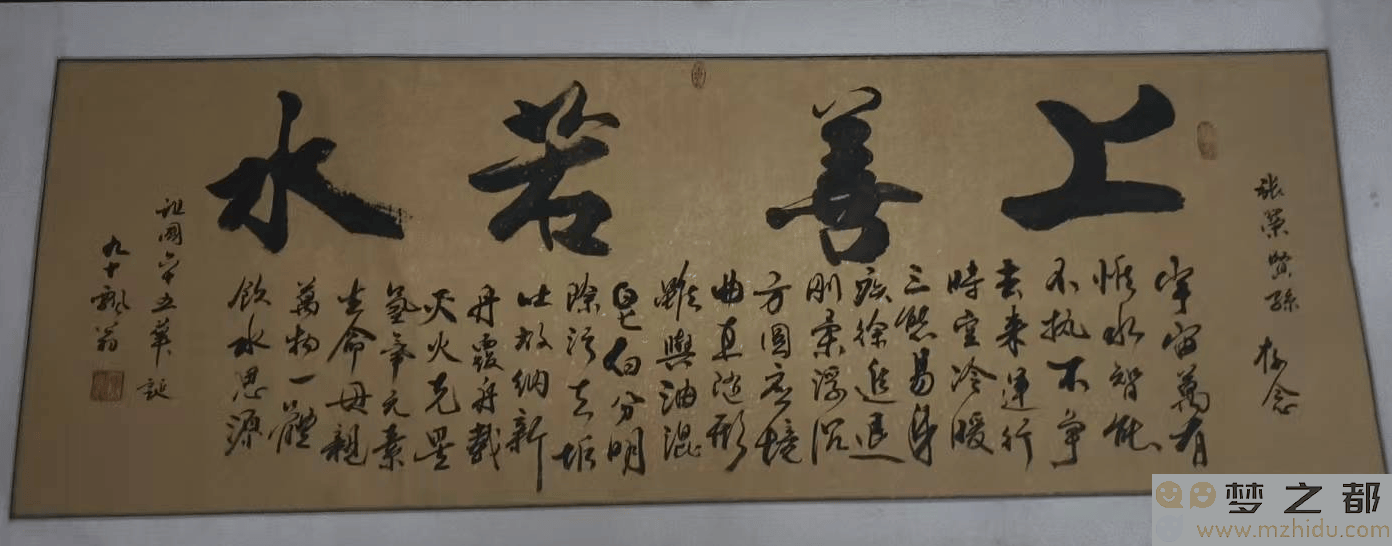 上善若水
張榮賢孫 存念
宇宙萬有
惟水智能
不執不争
去来運行
時空冷暖
三態易身
疾徐進退
剛柔浮沉
方圓應境
曲直随形
雖與油混
皂白分明
除污去垢
吐故納新
丹霞舟載
灭火克旱
氢氧元素
生命母親
萬物一體
飲水思源
祖國六十五華誕
九十飘翁
梦之都
www.mzhidu.com